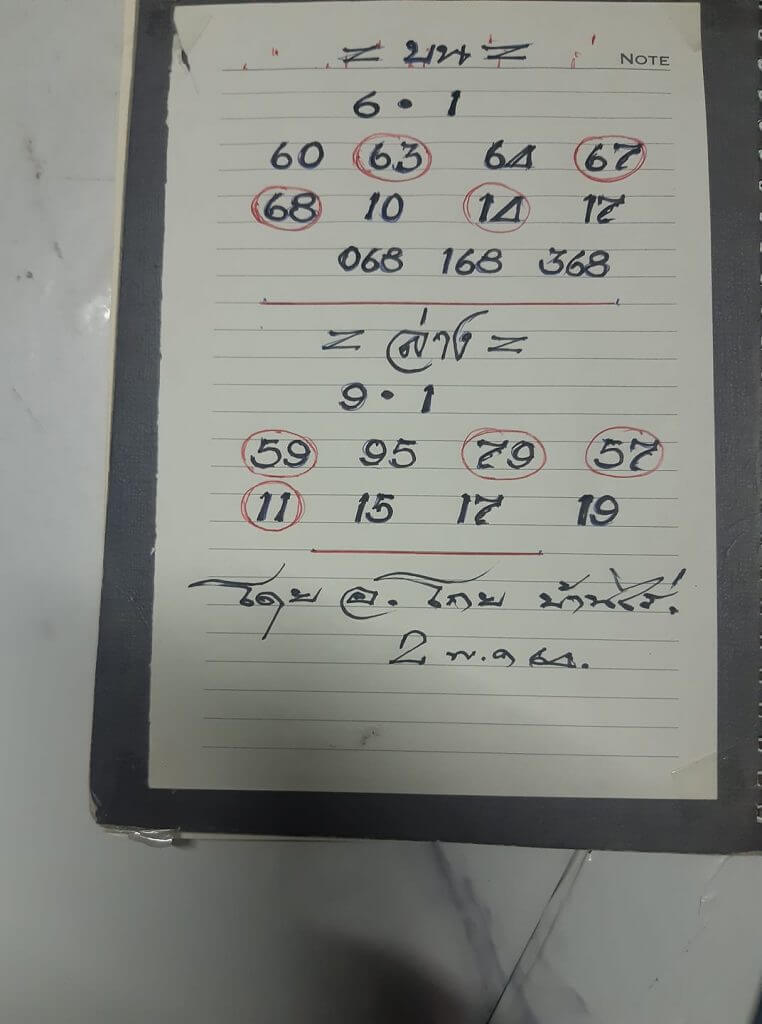 = บน = NOTE
6 • 1
60 63 64 67
68 10 14 17
068 168 368
= ล่าง =
9 • 1
59 95 79 57
11 15 17 19
โดย อ. โกย บ้านไร่.
2 พ.ค 64.